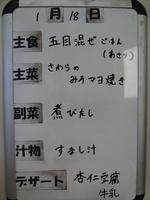 1月18日
主食 五目混ぜごはん
(あさり)
主菜 さわらの
みそマヨ焼き
副菜 煮びたし
汁物 すまし汁
デザート 杏仁豆腐
牛乳